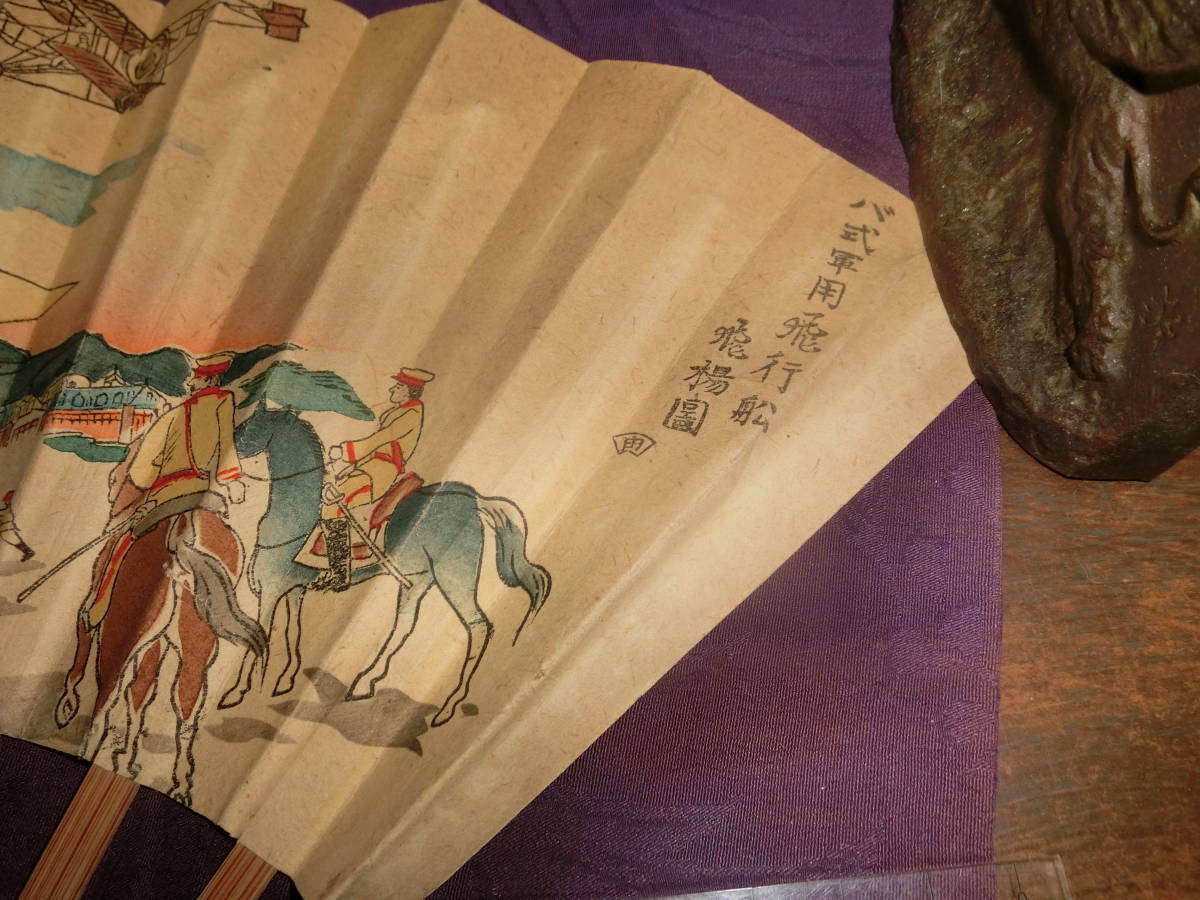 バ式軍用飛行船
飛揚圖